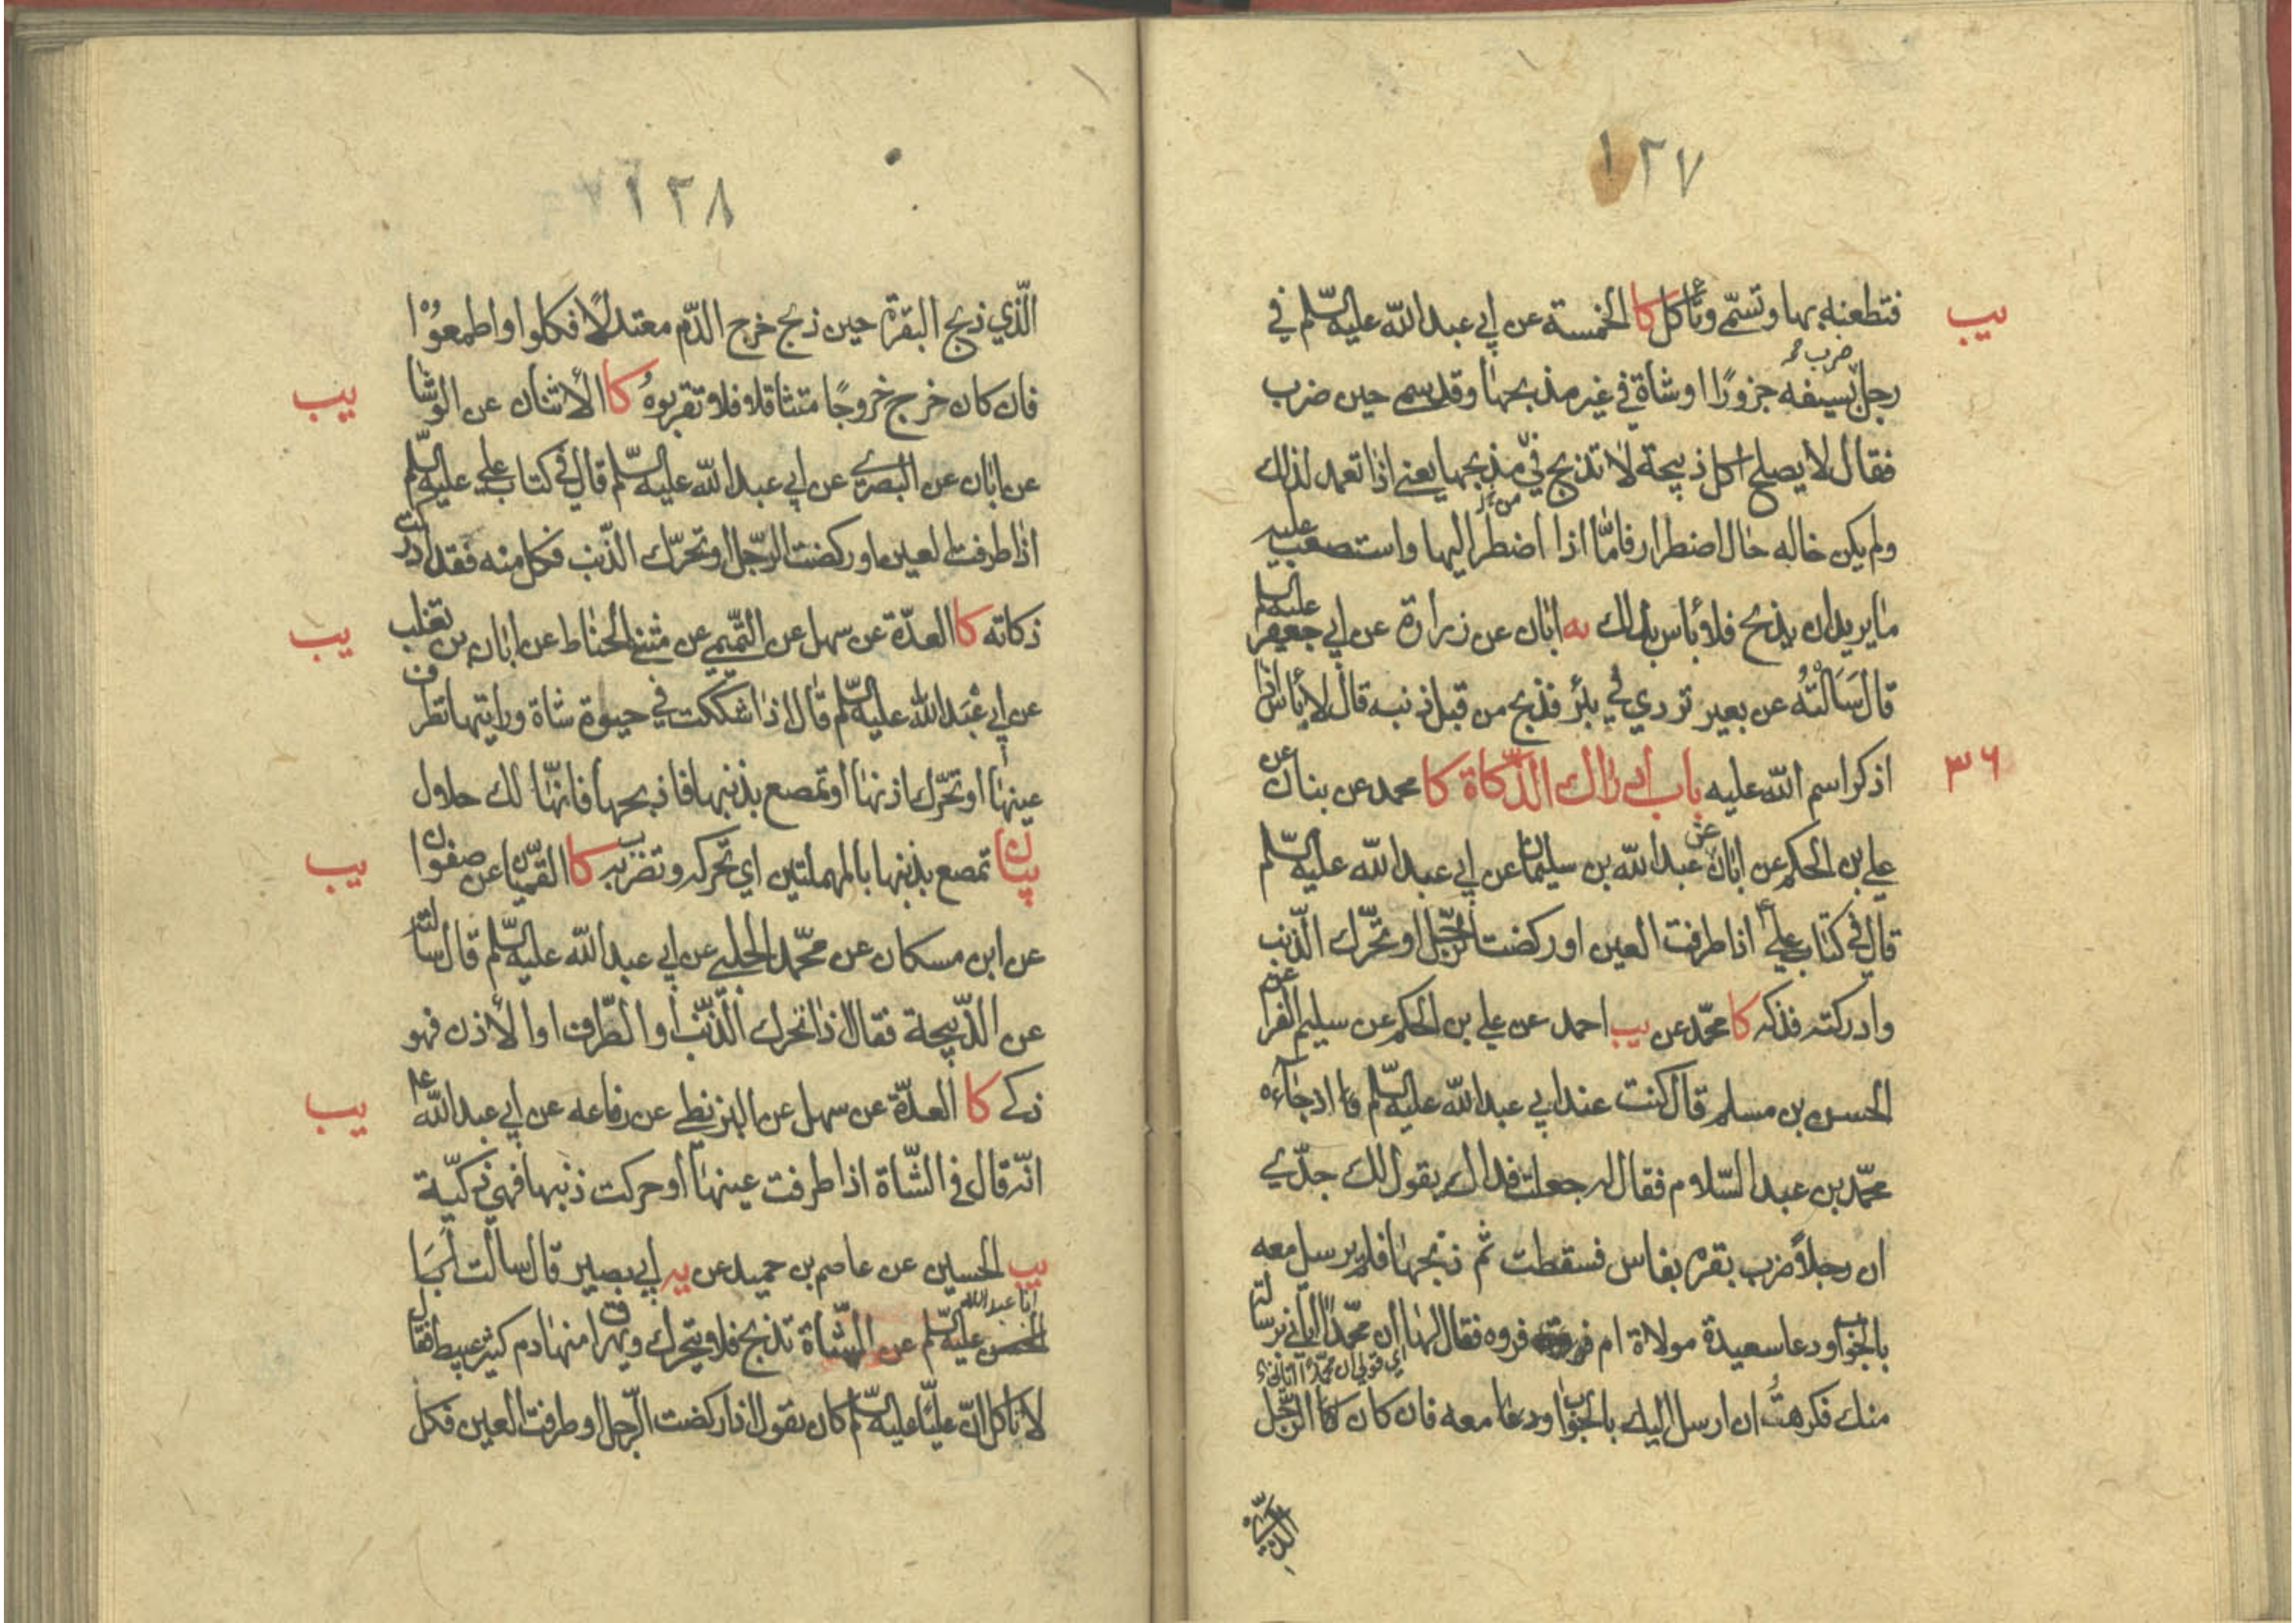 ١٢٧
يب
فتطعنه بها وتسمّي وتأكل كا الخمسة عن ابي عبد الله عليه السلم في
ضرب
رجل بسيفه جزورًا اوشاة في غير مذبحها وقد سمى حين ضرب
فقال لا يصلح اكل ذبيحة لا تذبح في مذبحها يعني اذا تعمد لذلك
من
ولم يكن حاله حال اضطرار فامّا اذا اضطر اليها واستصعب عليه
ما يريد ان يذبح فلا بأس بذلك يه ابان عن زرارة عن ابي جعفر عليه السلم
قال سَاَلْتُهُ عن بعير تردي في بئر فذبح من قبل ذنبه قال لا بأس اذا
٣٦
اذكر اسم الله عليه باب ادراك الذّكاة كا محمد عن بنان عن
علي بن الحكم عن ابان عن عبد الله بن سليمان عن ابي عبد الله عليه السلم
قال في كتاب علي ع اذا طرفت العين او ركضت الرّجل او تحّرك الذّنب
وادركته فذكه كا محمّد عن يب احمد عن علي بن الحكم عن سليم الفرا عن
الحسن بن مسلم قال كنت عند ابي عبد الله عليه السلم اذ جاءه
محمّد بن عبد السّلام فقال له جعلت فداك يقول لك جدّي
ان رجلاً ضرب بقرة بفاس فسقطت ثم ذبحها فلم يرسل معه
بالجواب ودعا سعيدة مولاة ام فروه فقال لها ان محمّدًا اتاني برسالة
اي قولي ان محمّدًا اتاني
منك فكرهتُ ان ارسل اليك بالجواب معه فان كان الرّجل
الذي
١٢٨
الّذي ذبح البقرة حين ذبح خرج الدّم معتدلًا فكلوا واطمعوْا
يب
فان كان خرج خروجًا متثاقلا فلا تقربوهُ كا الأثنان عن الوشّا
عن ابان عن البصري عن ابي عبد الله عليه السلم قال في كتاب علي عليه السلم
اذا طرفت العين او ركضت الرّجل او تحرّك الذّنب فكل منه فقد ادركت
يب
ذكاته كا العدّة عن سهل عن التّميمي عن مثنى الحناط عن ابان بن تغلب
عن ابي عَبد الله عليه السلم قال اذا شككت في حيوة شاة ورايتها تطرف
عينها او تحّرك اذنها او تمصع بذنبها فاذبحها فانّها لك حلال
يب
بيان تمصع بذنبها بالمهملتين اي تحركه وتضرب به كا القميّان عن صفوان
عن ابن مسكان عن محمّد الحلبي عن ابي عبد الله عليه السلم قال سالته
عن الذّبيحة فقال اذا تحرك الّذنب او الطّرف او الأذن فهو
يب
ذكي كا العدّة عن سهل عن البزنطي عن رفاعه عن ابي عبد الله ع
انّه قال في الشّاة اذا طرفت عينها او حركت ذنبها فهي ذكيّة
يب الحسين عن عاصم بن حميد عن يه ابي بصير قال سالت
ابا عبد الله
عليه السلم عن الشّاة تذبح فلا يتحرك ويهراق منها دم كثير عبيط فقال
لا تأكل انّ عليًّا عليه السلم كان يقول اذا ركضت الرّجل او طرفت العين فكل